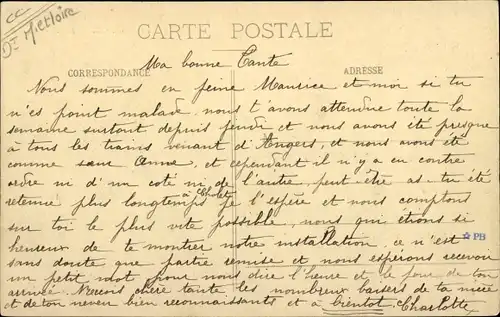 CC
Dt M. et Loire
CARTE POSTALE
CORRESPONDANCE
ADRESSE
Ma bonne Tante
Nous sommes en peine Maurice et moi si tu
n'es point malade, nous t'avons attendue toute la
semaine surtout depuis jeudi et nous avons été presque
à tous les trains venant d'Angers, et nous avons été
comme sœur Anne, et cependant il n'y a eu contre
ordre ni d'un coté ni de l'autre, peut être as tu été
retenue plus longtemps à Cholet, je l'espère et nous comptons
sur toi le plus vite possible, nous qui étions si
heureux de te montrer notre installation, ce n'est
sans doute que partie remise et nous espérons recevoir
un petit mot pour nous dire l'heure et le jour de ton
arrivée. Reçois chère tante les nombreux baisers de ta nièce
et de ton neveu bien reconnaissants et à bientôt, Charlotte
☆PB